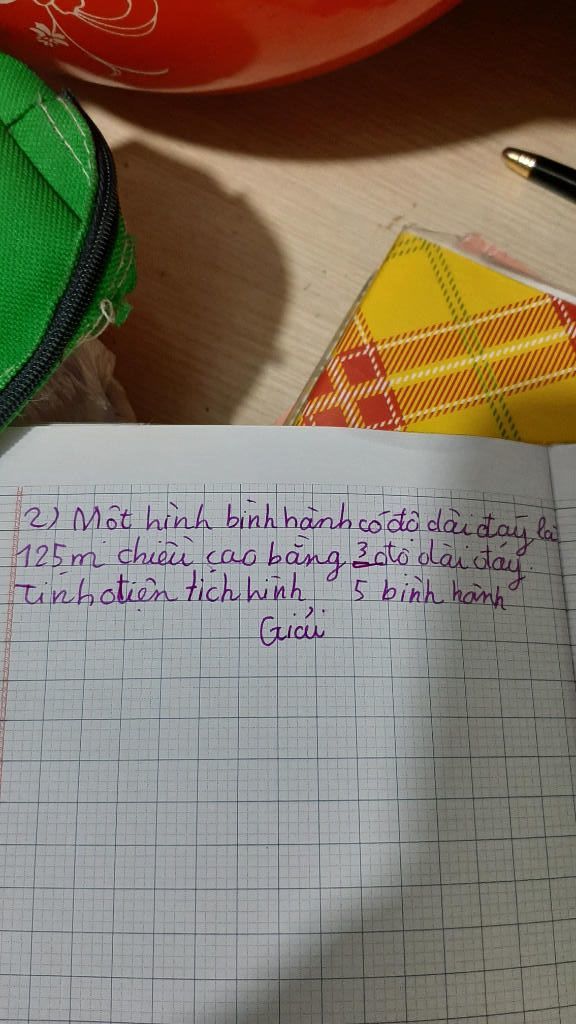 2) Một hình bình hành có độ dài đáy là
125m chiều cao bằng 3/5 độ dài đáy.
Tính diện tích hình bình hành
Giải